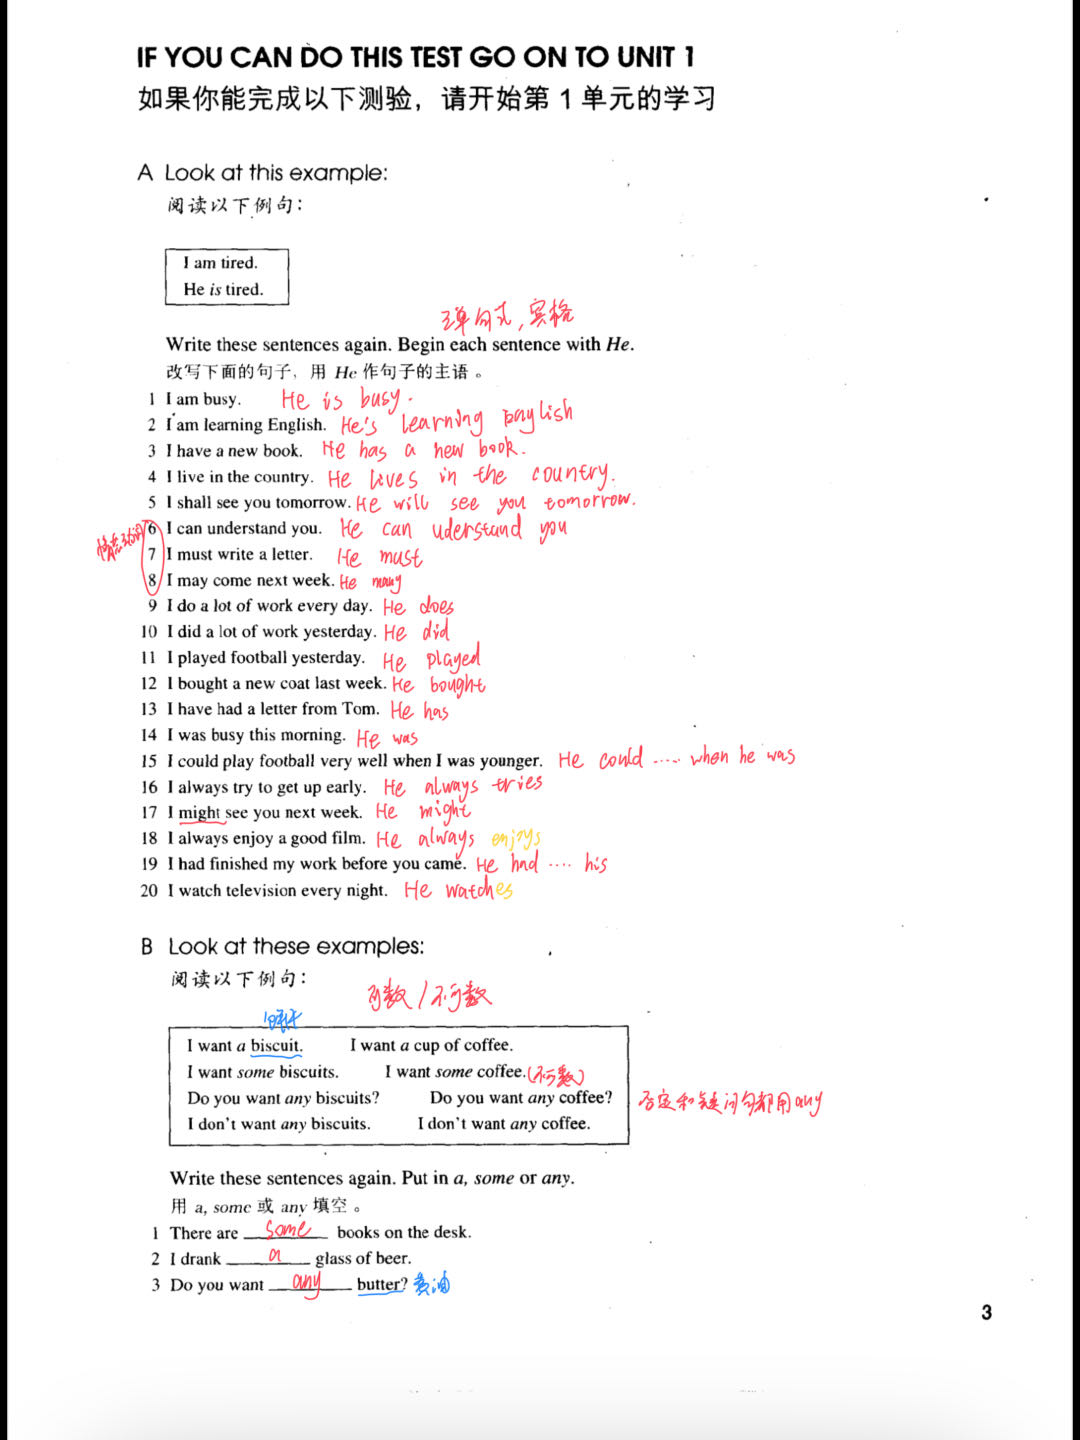 IF YOU CAN DO THIS TEST GO ON TO UNIT 1
如果你能完成以下测验，请开始第 1 单元的学习
A Look at this example:
阅读以下例句：
I am tired.
He is tired.
句式，宾格
Write these sentences again. Begin each sentence with He.
改写下面的句子，用 He 作句子的主语。
1 I am busy. He is busy.
2 I am learning English. He's learning English
3 I have a new book. He has a new book.
4 I live in the country. He lives in the country.
5 I shall see you tomorrow. He will see you tomorrow.
情态动词 6 I can understand you. He can uderstand you
7 I must write a letter. He must
8 I may come next week. He many
9 I do a lot of work every day. He does
10 I did a lot of work yesterday. He did
11 I played football yesterday. He played
12 I bought a new coat last week. He bought
13 I have had a letter from Tom. He has
14 I was busy this morning. He was
15 I could play football very well when I was younger. He could ..... when he was
16 I always try to get up early. He always tries
17 I might see you next week. He might
18 I always enjoy a good film. He always enjoys
19 I had finished my work before you came. He had .... his
20 I watch television every night. He watches
B Look at these examples:
阅读以下例句：
可数 / 不可数
饼干
I want a biscuit. I want a cup of coffee.
I want some biscuits. I want some coffee. (不可数)
Do you want any biscuits? Do you want any coffee? 否定和疑问句都用any
I don't want any biscuits. I don't want any coffee.
Write these sentences again. Put in a, some or any.
用 a, some 或 any 填空。
1 There are some books on the desk.
2 I drank a glass of beer.
3 Do you want any butter? 黄油
3